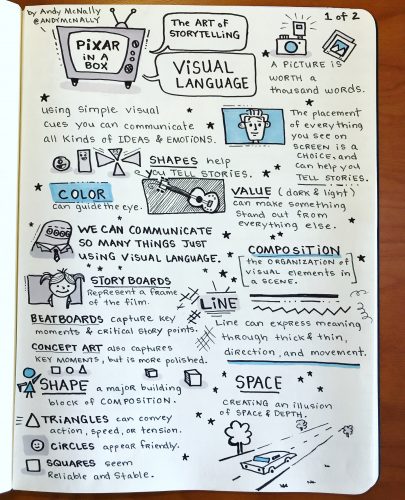 by Andy McNally
@ANDYMCNALLY
PIXAR
IN A
BOX
The ART OF
STORYTELLING
VISUAL
LANGUAGE
1 of 2
A PICTURE IS
WORTH A
THOUSAND WORDS.
Using simple visual
cues you can communicate
all kinds of IDEAS & EMOTIONS.
The placement
of everything
you see on
SCREEN IS A
CHOICE, and
can help you
TELL STORIES.
SHAPES help
you TELL STORIES.
COLOR
can guide the eye.
VALUE (dark & light)
can make something
STAND OUT FROM
everything else.
WE CAN COMMUNICATE
SO MANY THINGS JUST
USING VISUAL LANGUAGE.
COMPOSITION
the ORGANIZATION of
VISUAL elements in
a SCENE.
STORYBOARDS
Represent a frame
of the film.
BEATBOARDS capture key
moments & critical story points.
CONCEPT ART also captures
KEY MOMENTS, but is more polished.
LINE
Line can express meaning
through thick & thin,
direction, and movement.
SHAPE a major building
block of COMPOSITION.
TRIANGLES can convey
action, speed, or tension.
CIRCLES appear friendly.
SQUARES seem
Reliable and Stable.
SPACE
CREATING an illusion
of SPACE & DEPTH.